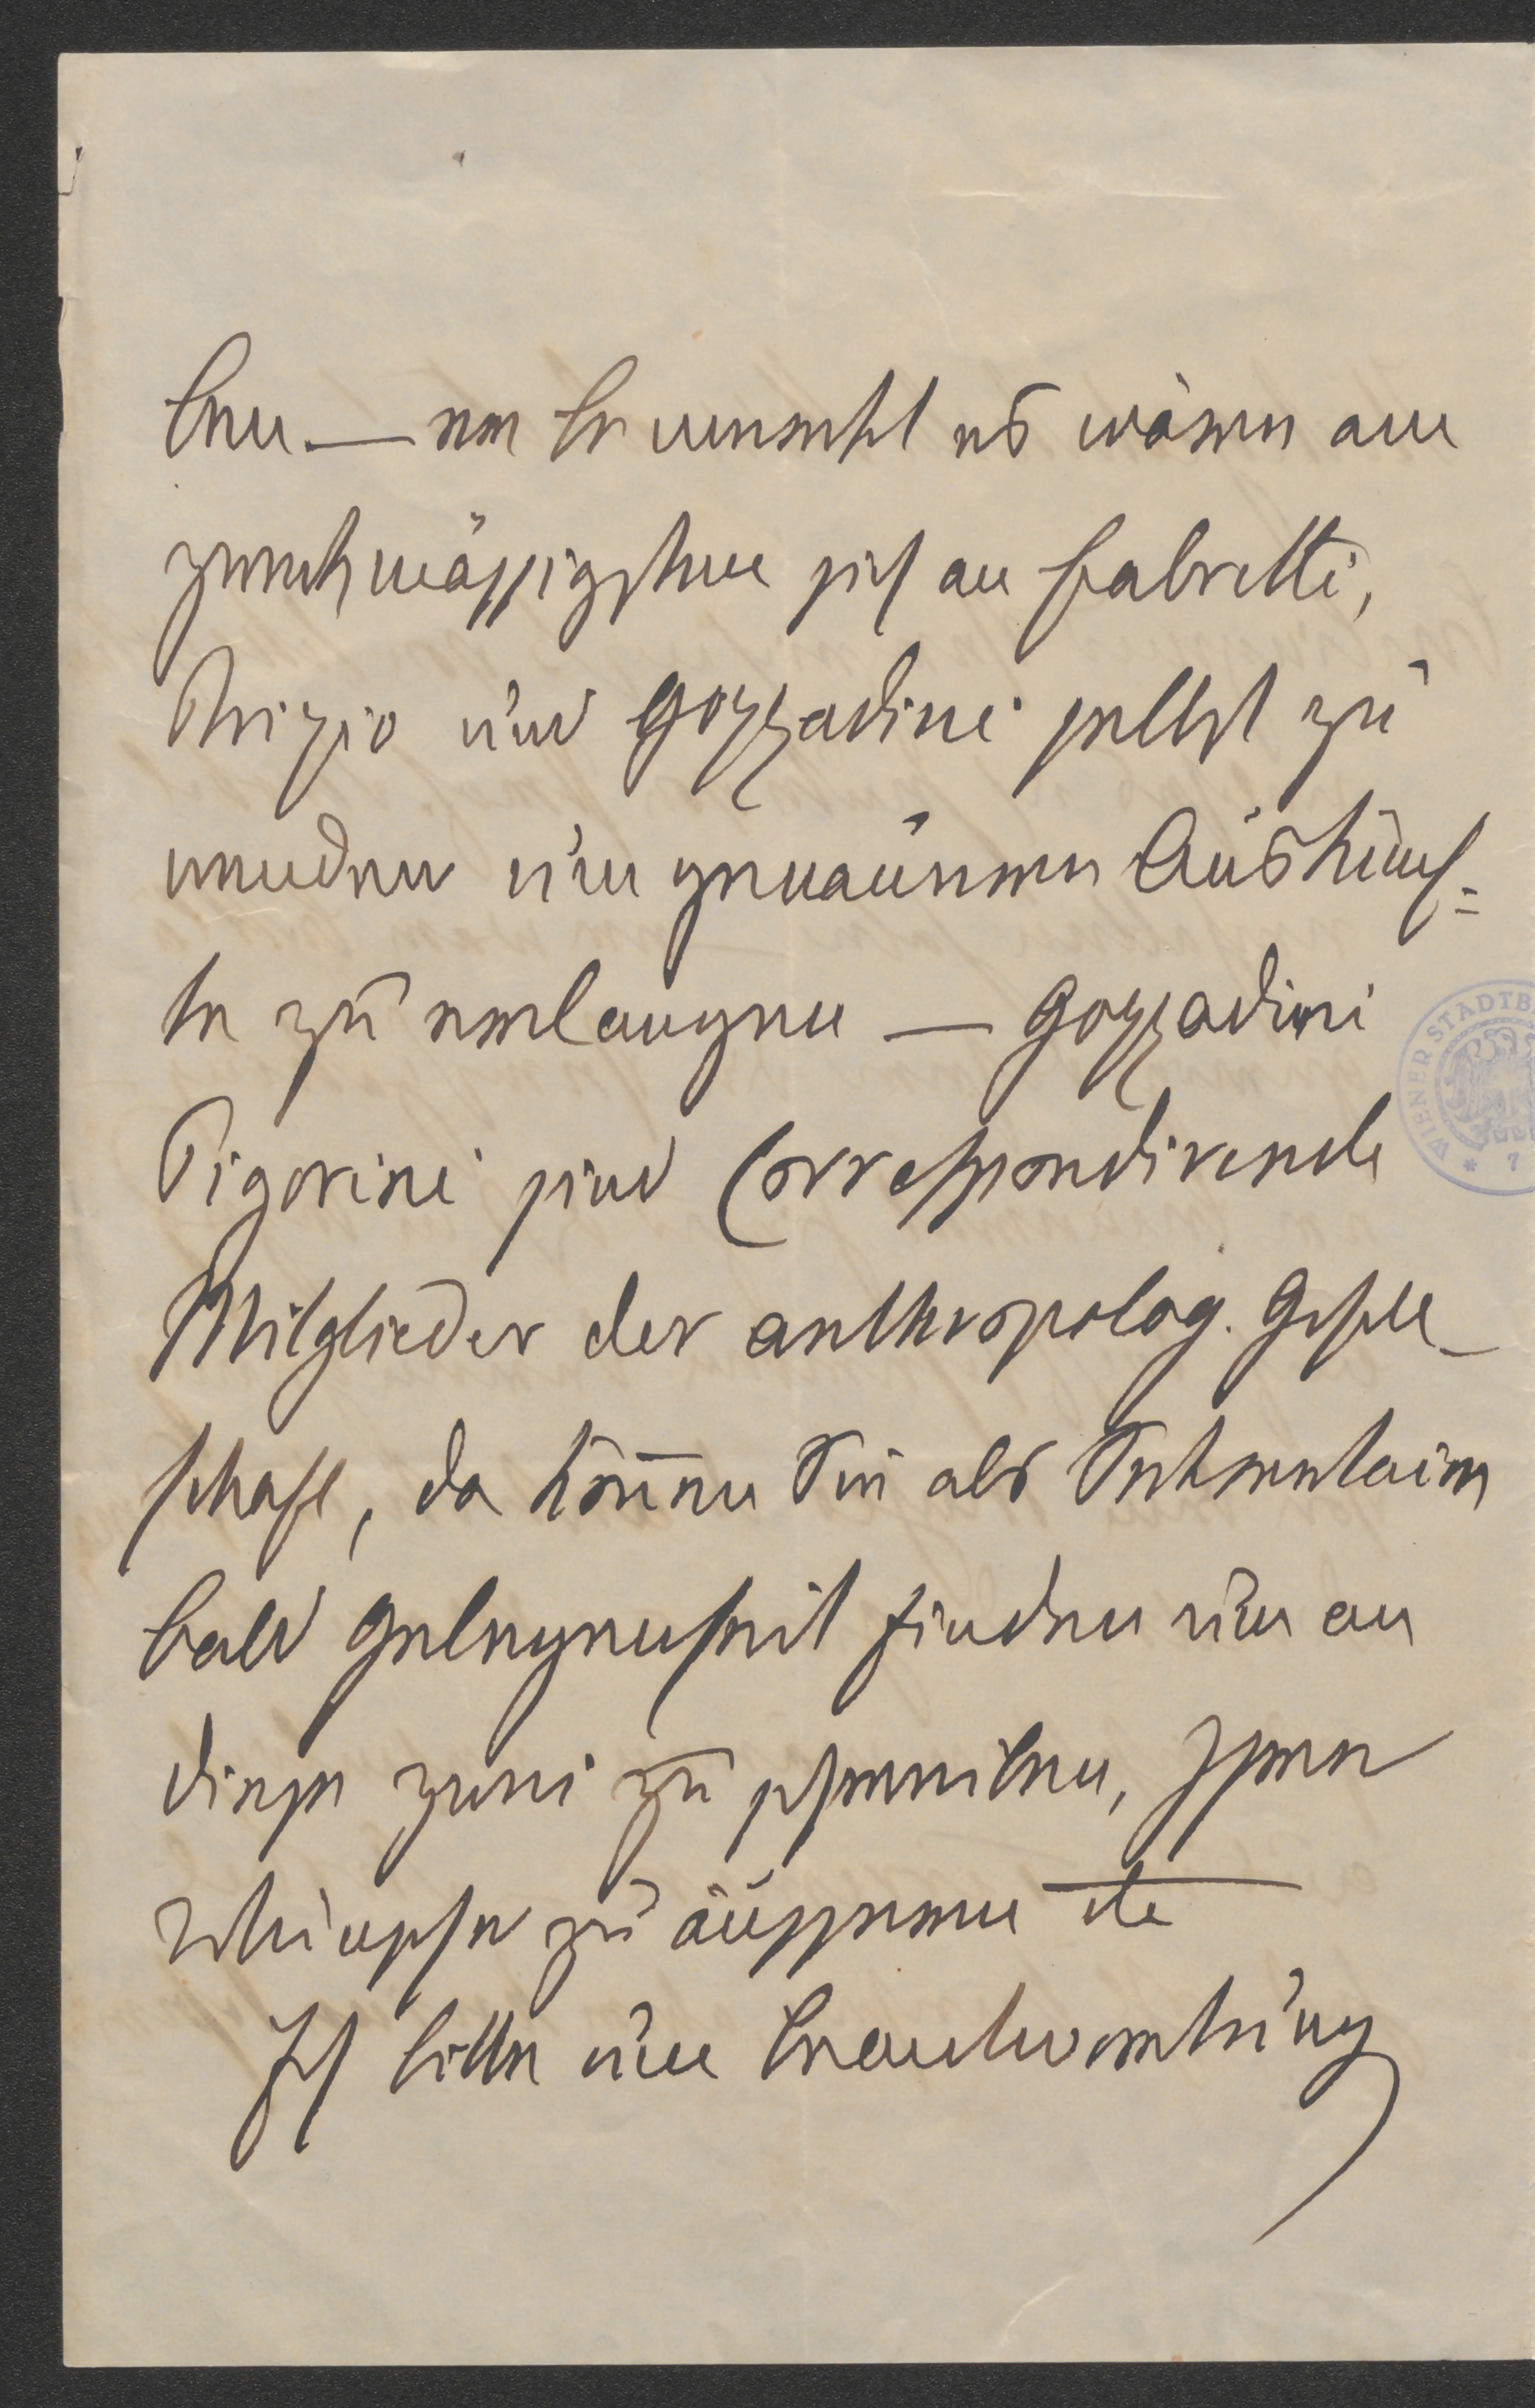 ben — er bemerkt es wäre am
zweckmässigsten sich an Fabretti,
Brizio und Gozzadini selbst zu
wenden um genauere Auskünf=
te zu erlangen — Gozzadini
Pigorini sind Correspondirende
Mitglieder der anthropolog. Gesell_
schaft, da können Sie als Sekretair
bald Gelegenheit finden um an
diese zwei zu schreiben, Ihre
Wünsche zu äussern etc
Ich bitte um Beantwortung
WIENER STADTB
* 7